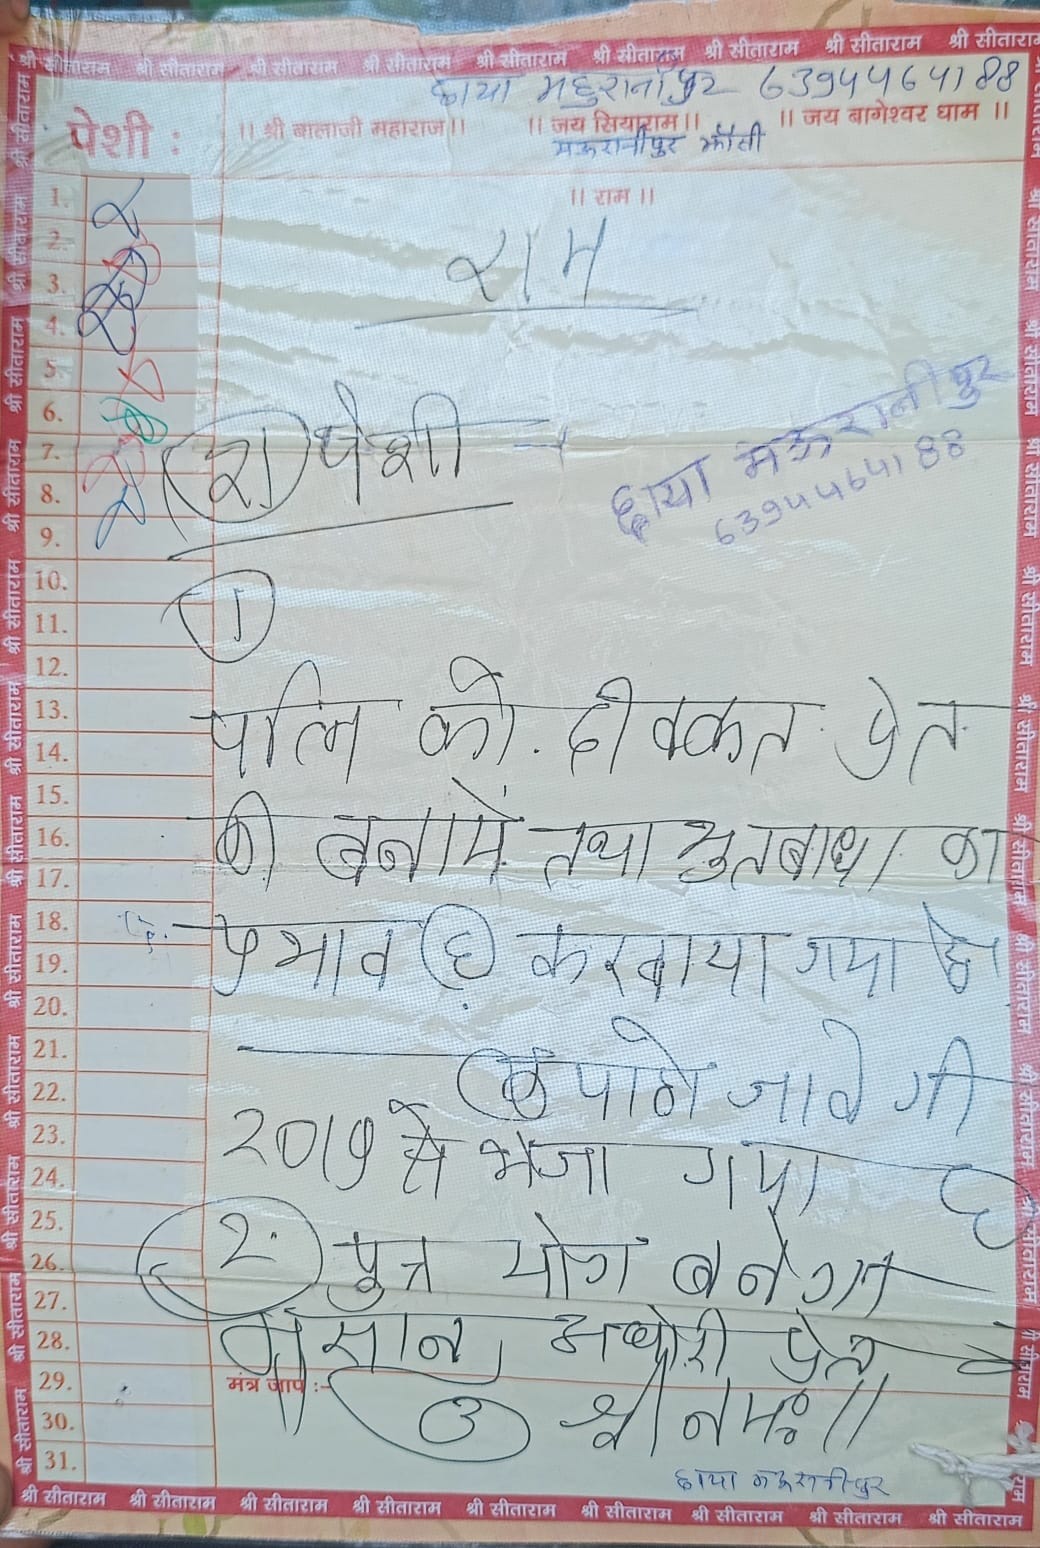 श्री सीताराम श्री सीताराम श्री सीताराम श्री सीताराम श्री सीताराम श्री सीताराम श्री सीताराम श्री सीताराम श्री सीताराम
छाया महुरानीपुर 6394464188
पेशी :
।। श्री बालाजी महाराज।। ।। जय सियाराम।। ।। जय बागेश्वर धाम ।।
मऊरानीपुर झाँसी
।। राम ।।
राम
1.
2.
3.
4.
5.
6.
7.
8.
9.
10.
11.
12.
13.
14.
15.
16.
17.
18.
19.
20.
21.
22.
23.
24.
25.
26.
27.
28.
29.
30.
31.
पेशी
छाया मऊरानीपुर
6394464188
1
को दीक्कत प्रेत
की तथा भुतबाधा का
प्रभाव है करवाया गया है
जावे गी
2017 से भेजा गया है
2. पुत्र योग बनेगा
मसान, अघोरी प्रेत
मंत्र जाप :-
श्री नमः॥
छाया मऊरानीपुर
श्री सीताराम श्री सीताराम श्री सीताराम श्री सीताराम श्री सीताराम श्री सीताराम श्री सीताराम श्री सीताराम श्री सीताराम